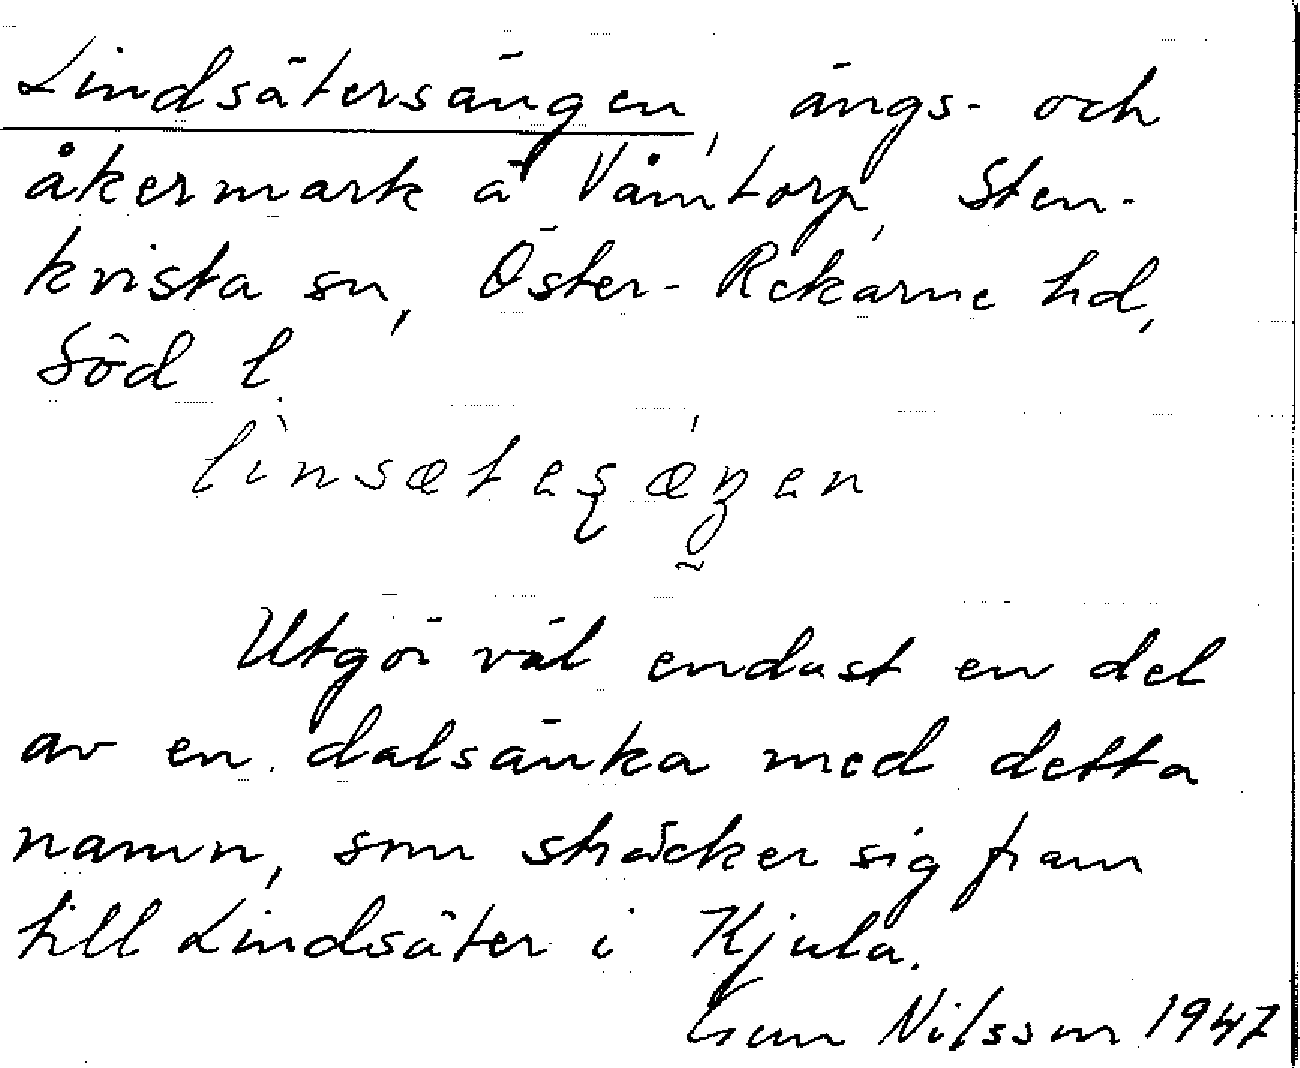 Lindsätersängen, ängs- och
åkermark å Våmtorp, Sten-
kvista sn, Öster-Rekarne hd,
Söd l.
lìnsætesǽŋen
Utgör väl endast en del
av en dalsänka med detta
namn, som sträcker sig fram
till Lindsäter i Kjula.
Gun Nilsson 1947